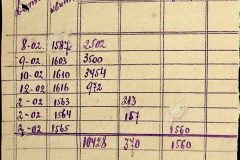 8-02 1587 2502
9-02 1603 3500
10-02 1610 3454
12-02 1616 972
2-02 1563 213
2-02 1564 157
2-02 1565 1560
10428 370 1560